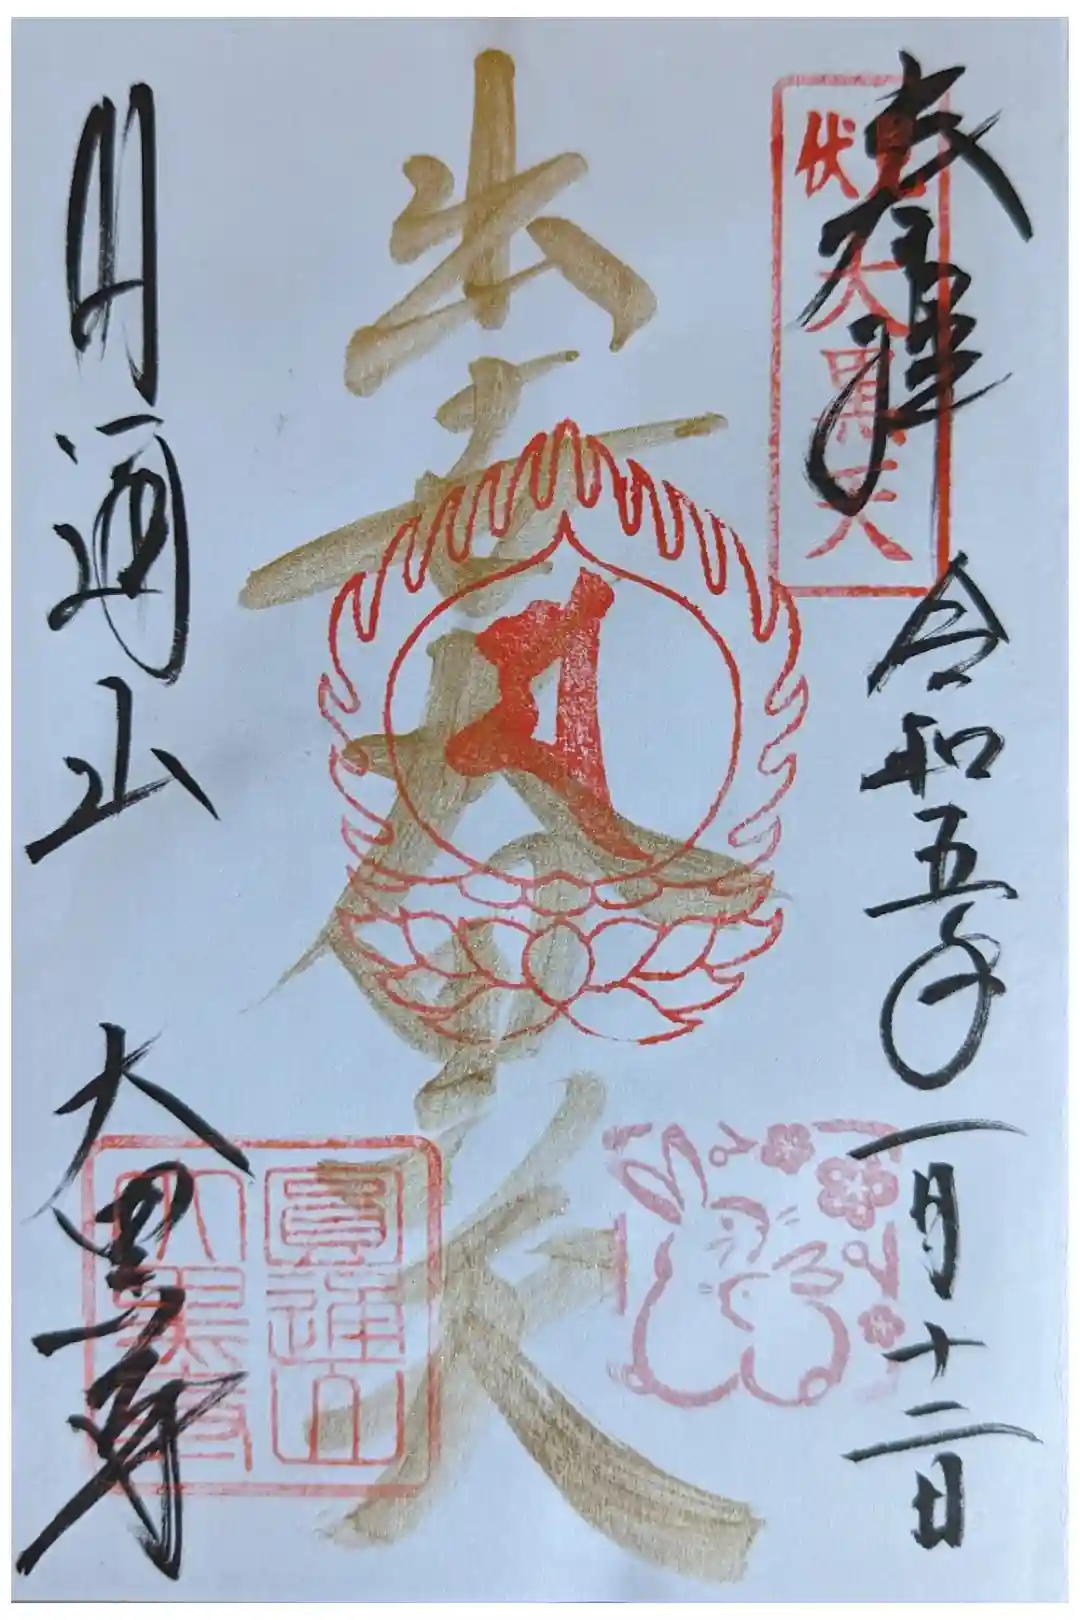 奉拝
令和五年一月十二日
伏見
大黒天
出世大黒天
円通山
大黒寺
圓通山
大黒寺